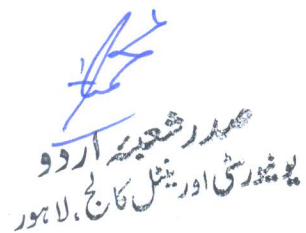 صدر شعبۂ اردو
یونیورسٹی اورینٹل کالج، لاہور